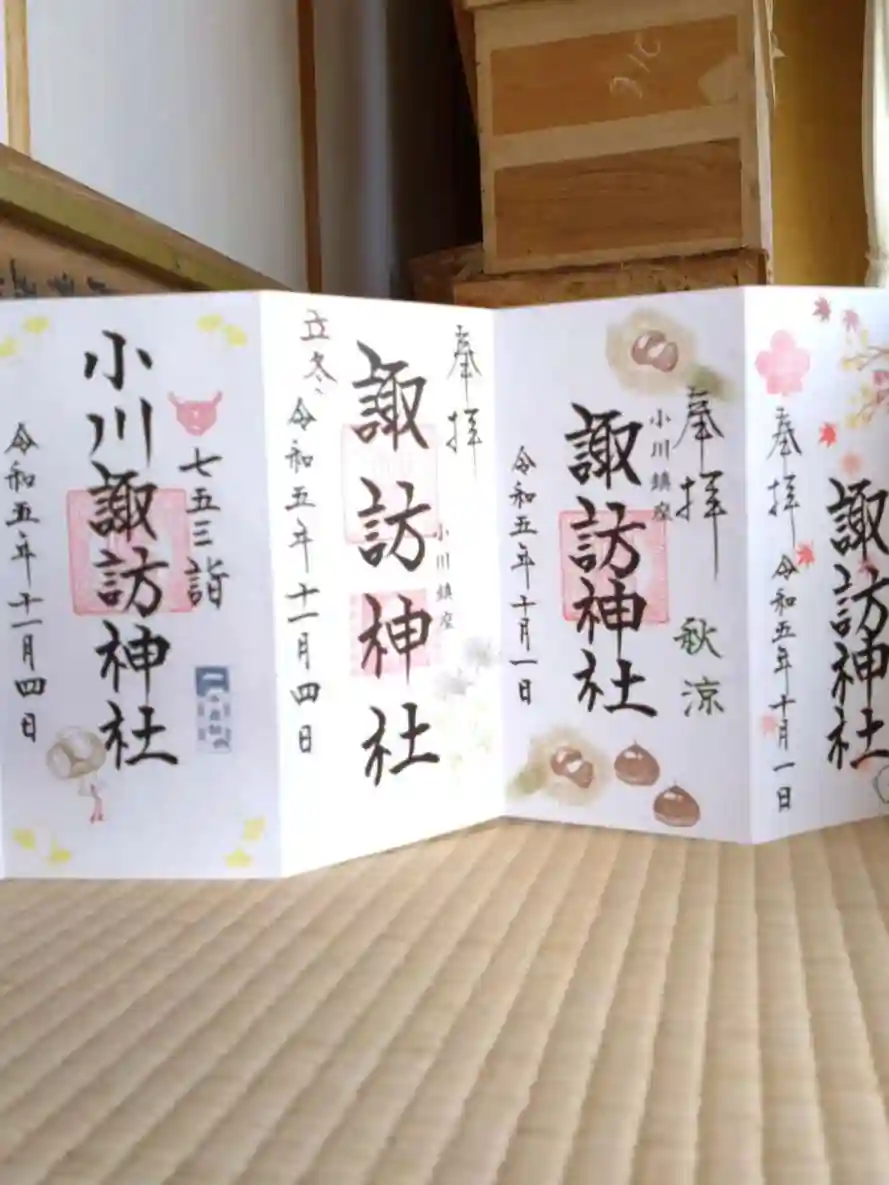 奉拝
令和五年十月一日
諏訪神社
奉拝
秋涼
小川鎮座
諏訪神社
令和五年十月一日
奉拝
小川鎮座
諏訪神社
立冬
令和五年十一月四日
七五三詣
小川諏訪神社
令和五年十一月四日